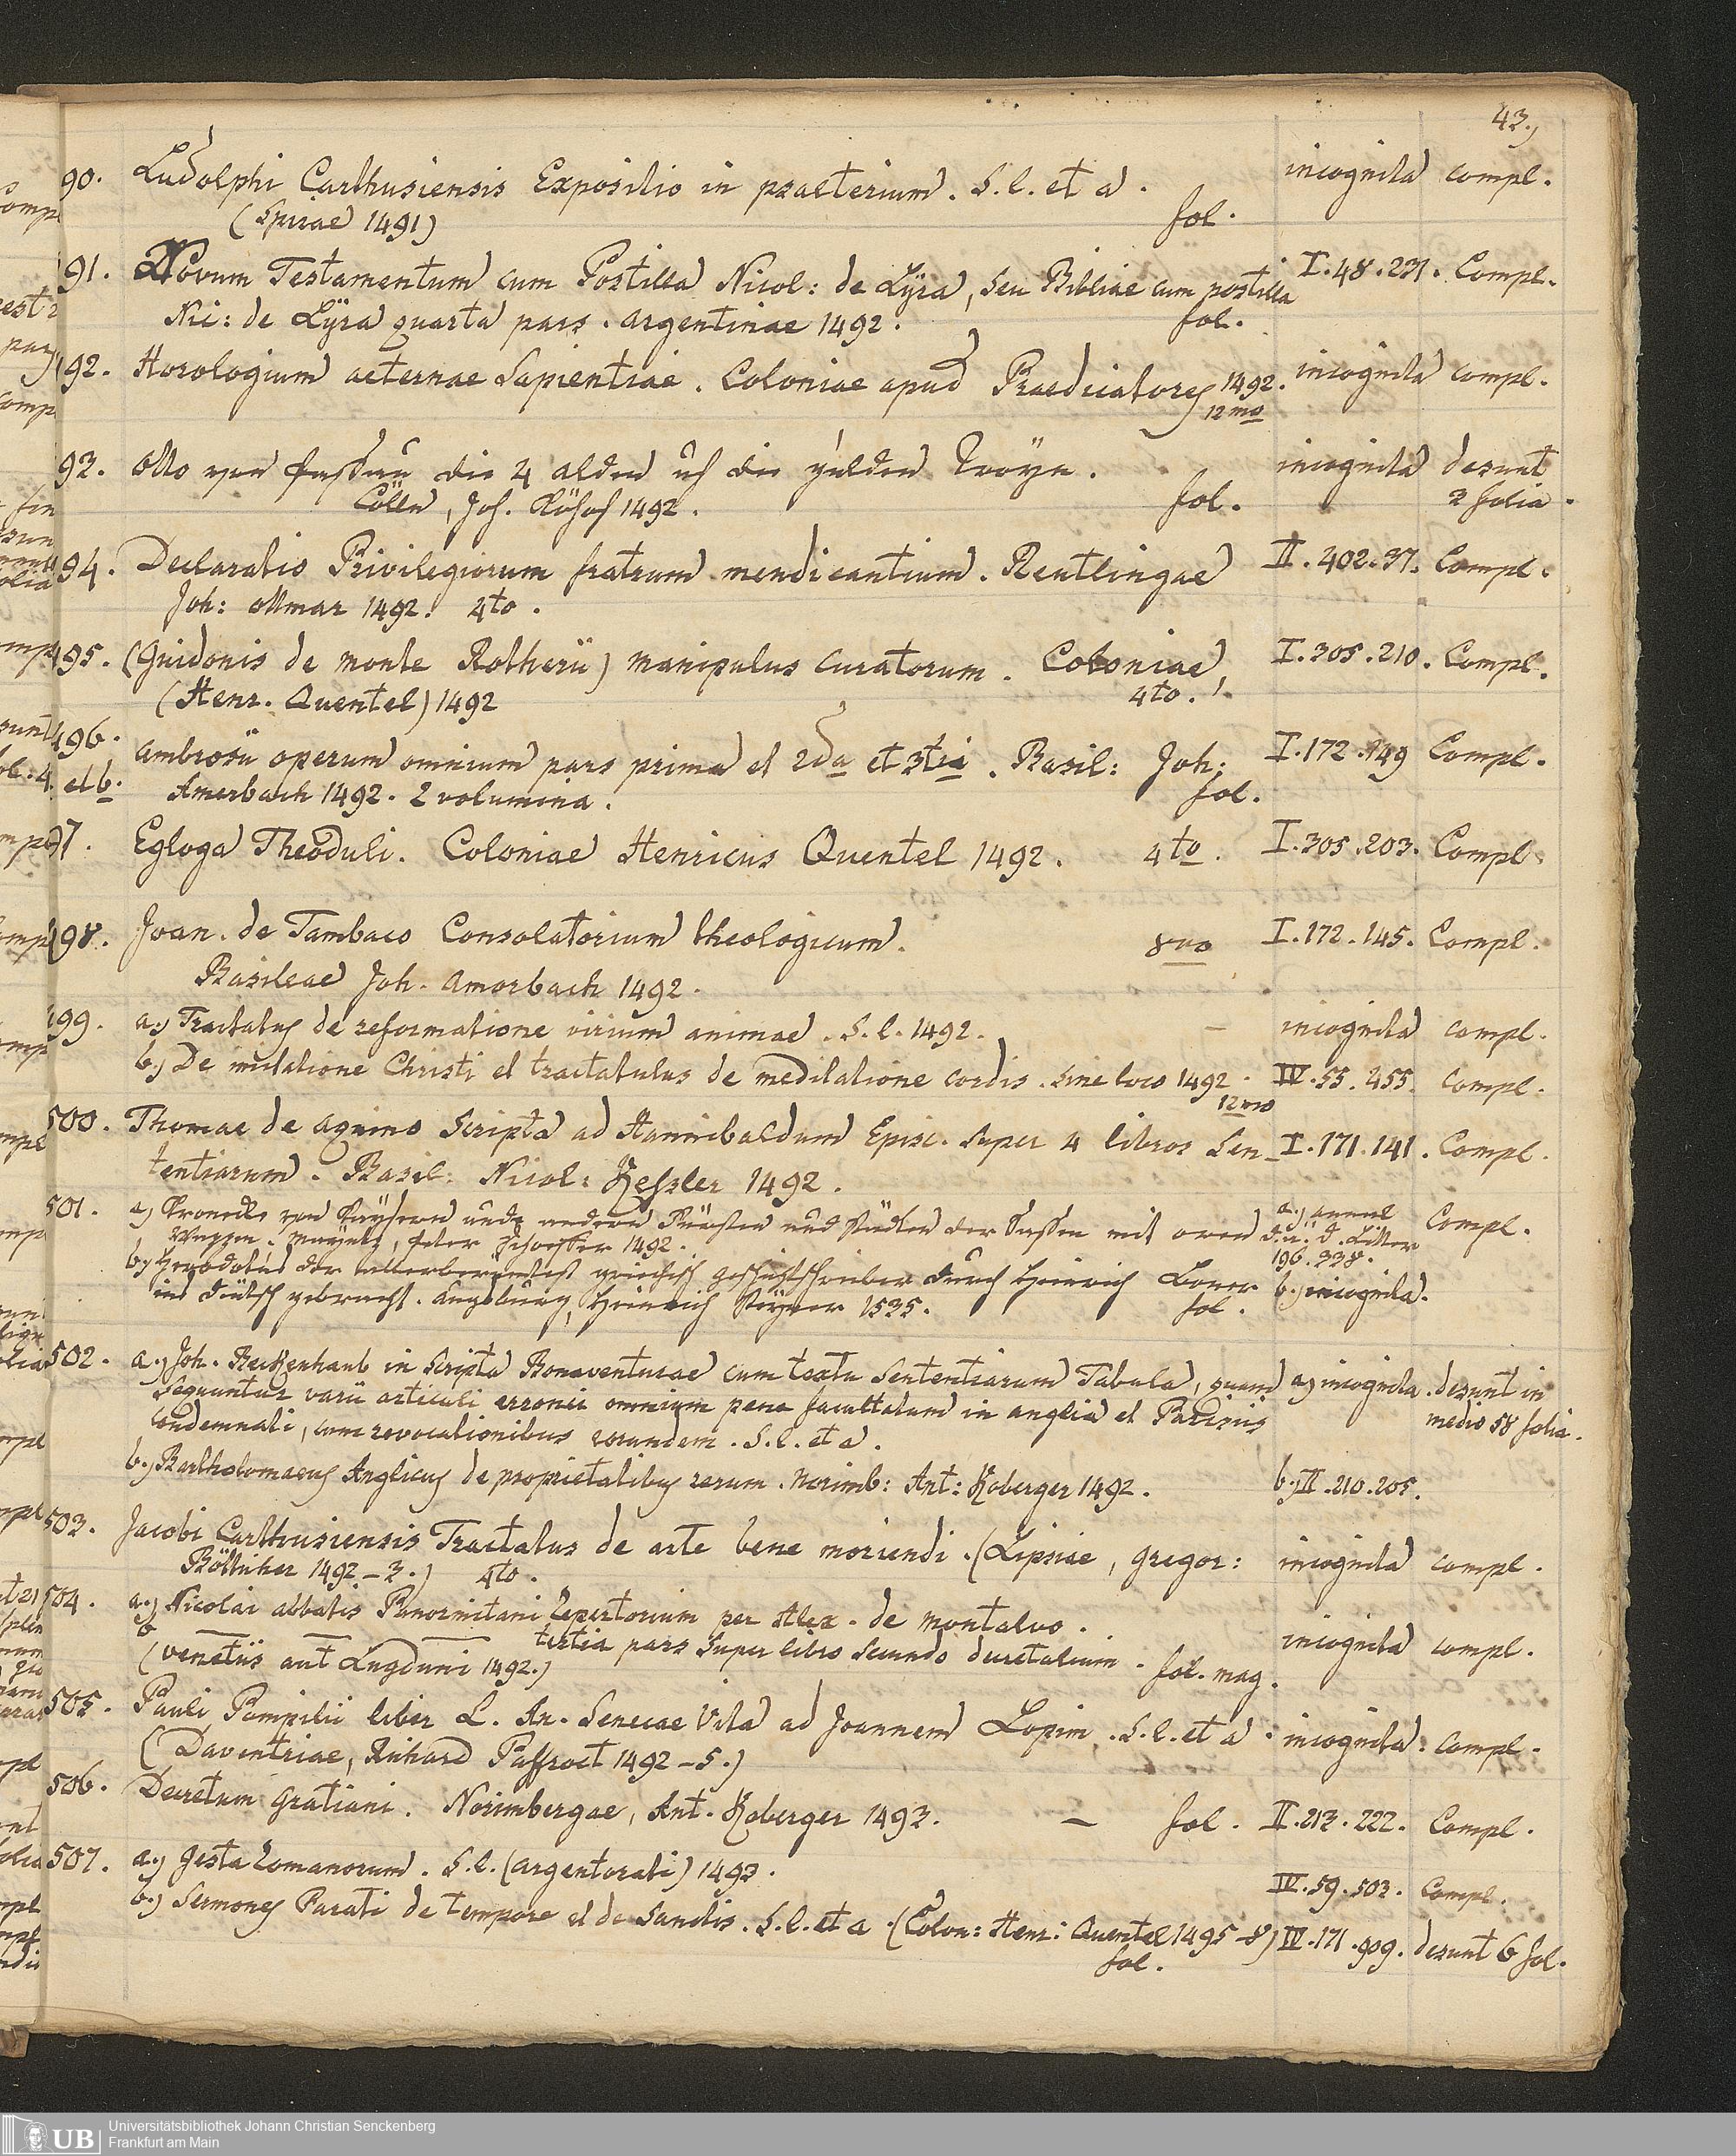 43.)
90. Ludolphi Carthusiensis Expositio in psaeterium. S. l. et a. incognita compl.
(Spirae 1491) fol.
91. Novum Testamentum cum Postilla Nicol: de Lÿra, seu Bibliae cum postilla I. 48. 271. Compl.
Nic: de Lÿra quarta pars. Argentinae 1492. fol.
92. Horologium aeternae Sapientiae. Coloniae apud Praedicatores 1492. incognita compl.
12mo
93. Otto von Passau die 4 alden uf die gulden Troÿn. incognita desunt
Cölln, Joh. Kölhof 1492. fol. 2 folia.
94. Declaratio Privilegiorum fratrum mendicantium. Reutlingae II. 402. 37. Compl.
Joh: Ottmar 1492. 4to.
495. (Guidonis de monte Rotherii) manipulus curatorum. Coloniae, I. 305. 210. Compl.
(Henr. Quentel) 1492 4to.
496. Ambrosii operum omnium pars prima et 2da et 3tia. Basil: Joh: I. 172. 149 Compl.
et b. Amerbach 1492. 2 volumina. fol.
97. Egloga Theoduli. Coloniae Henricus Quentel 1492. 4to. I. 305. 203. Compl.
498. Joan. de Tambaco Consolatorium theologicum. 8vo I. 172. 145. Compl.
Basileae Joh. Amorbach 1492.
499. a.) Tractatus de reformatione virium animae. S. l. 1492. – incognita compl.
b.) De imitatione Christi et tractatulus de meditatione cordis. sine loco 1492. IV. 55. 455. compl.
12mo
500. Thomae de Aquino Scripta ad Hannibaldum Episc. super 4 libros Sen- I. 171. 141. Compl.
tentiarum. Basil: Nicol: Keßler 1492.
501. a) Cronecke von Kaÿsern und andern Fürsten und Städten der Sassen mit oren a.) annal Compl.
Wappen. Maynz, Peter Schoeffer 1492. d. ä. d. Litter
196. 338.
b.) Herodotus der allerberümtest griechisch Geschichtschreiber durch Heinrich Boner b.) incognita.
ins Deütsch gebracht. Augsburg, Heinrich Steÿner 1535. fol.
502. a.) Joh. Beckenhaub in Scripta Bonaventurae cum textu Sententiarum Tabula, quam a) incognita. desunt in
sequuntur varii articuli erronii omnium pene facultatum in Anglia et Parisiis medio 58 folia.
condemnati, cum revocationibus eorundem. S. l. et a.
b.) Bartholomaeus Anglicus de proprietatibus rerum. Norimb: Ant: Koberger 1492. b.) II. 210. 205.
503. Jacobi Carthusiensis Tractatus de arte bene moriendi. (Lipsiae, Gregor: incognita compl.
Böttiher 1492–3.) 4to.
504. a.) Nicolai abbatis Panormitani Repertorium per Alex. de Montalvo.
b — — — tertia pars super libro secundo decretalium. incognita compl.
(Venetiis aut Lugduni 1492.) fol. mag.
505. Pauli Pompilii liber L. An. Senecae Vita ad Joannem Lopim. S. l. et a. incognita. compl.
(Daventriae, Richard Paffroet 1492–5.)
506. Decretum Gratiani. Norimbergae, Ant. Koberger 1493. – fol. II. 213. 222. Compl.
507. a.) Gesta Romanorum. S. l. (Argentorati) 1493. IV. 59. 503. Compl.
b.) Sermones Parati de tempore et de Sanctis. S. l. et a. (Colon: Henr: Quentel 1495–8) IV. 171. 909. desunt 6 fol.
fol.
UB
Universitätsbibliothek Johann Christian Senckenberg
Frankfurt am Main